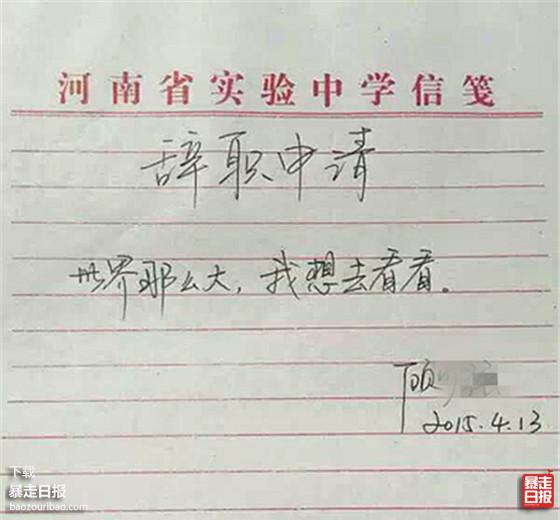 河南省实验中学信笺
辞职申请
世界那么大，我想去看看。
顾
2015.4.13
下载
暴走日报
baozouribao.com
暴走日报